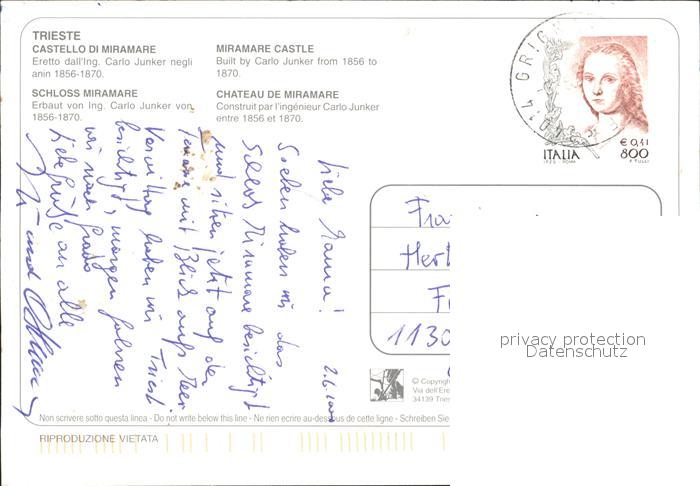 TRIESTE
CASTELLO DI MIRAMARE
Eretto dall'Ing. Carlo Junker negli
anin 1856-1870.
MIRAMARE CASTLE
Built by Carlo Junker from 1856 to
1870.
SCHLOSS MIRAMARE
Erbaut von Ing. Carlo Junker von
1856-1870.
CHATEAU DE MIRAMARE
Construit par l'ingénieur Carlo Junker
entre 1856 et 1870.
€ 0,41
ITALIA 800
Liebe Mama!
2.6.
Soeben haben wir das
Schloß Miramare besichtigt
und sitzen jetzt auf der
Terasse mit Blick aufs Meer
Vormittag haben wir Triest
besichtigt, morgen fahren
wir nach Grado
Liebe Grüße an alle
und
Fra
Her
F
1130
privacy protection
Datenschutz
© Copyrigh
Via dell'Ere
34139 Trie
Non scrivere sotto questa linea - Do not write below this line - Ne rien ecrire au-dessous de cette ligne - Schreiben Sie
RIPRODUZIONE VIETATA